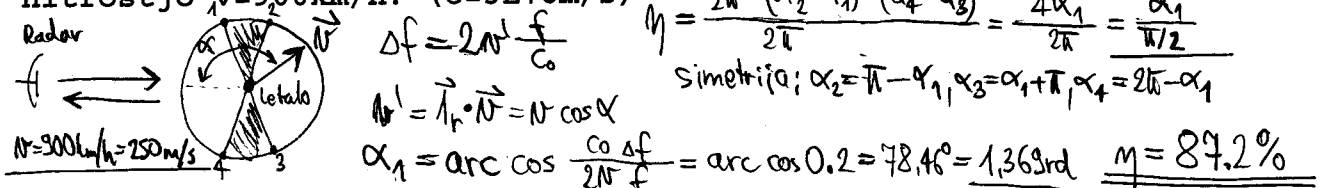 hitrostjo v=900km/h? (c=3E+8m/s)
η = (2π - (α₂ - α₁) - (α₄ - α₃)) / 2π = 4α₁ / 2π = α₁ / (π/2)
Radar
1 2 v⃗
α
letalo
4 3
v=900km/h=250m/s
Δf = 2v' f/c₀
v' = 1⃗ᵣ · v⃗ = v cos α
simetrija: α₂ = π - α₁, α₃ = α₁ + π, α₄ = 2π - α₁
α₁ = arc cos (c₀ Δf) / (2v f) = arc cos 0.2 = 78,46° = 1,369rd
η = 87.2%